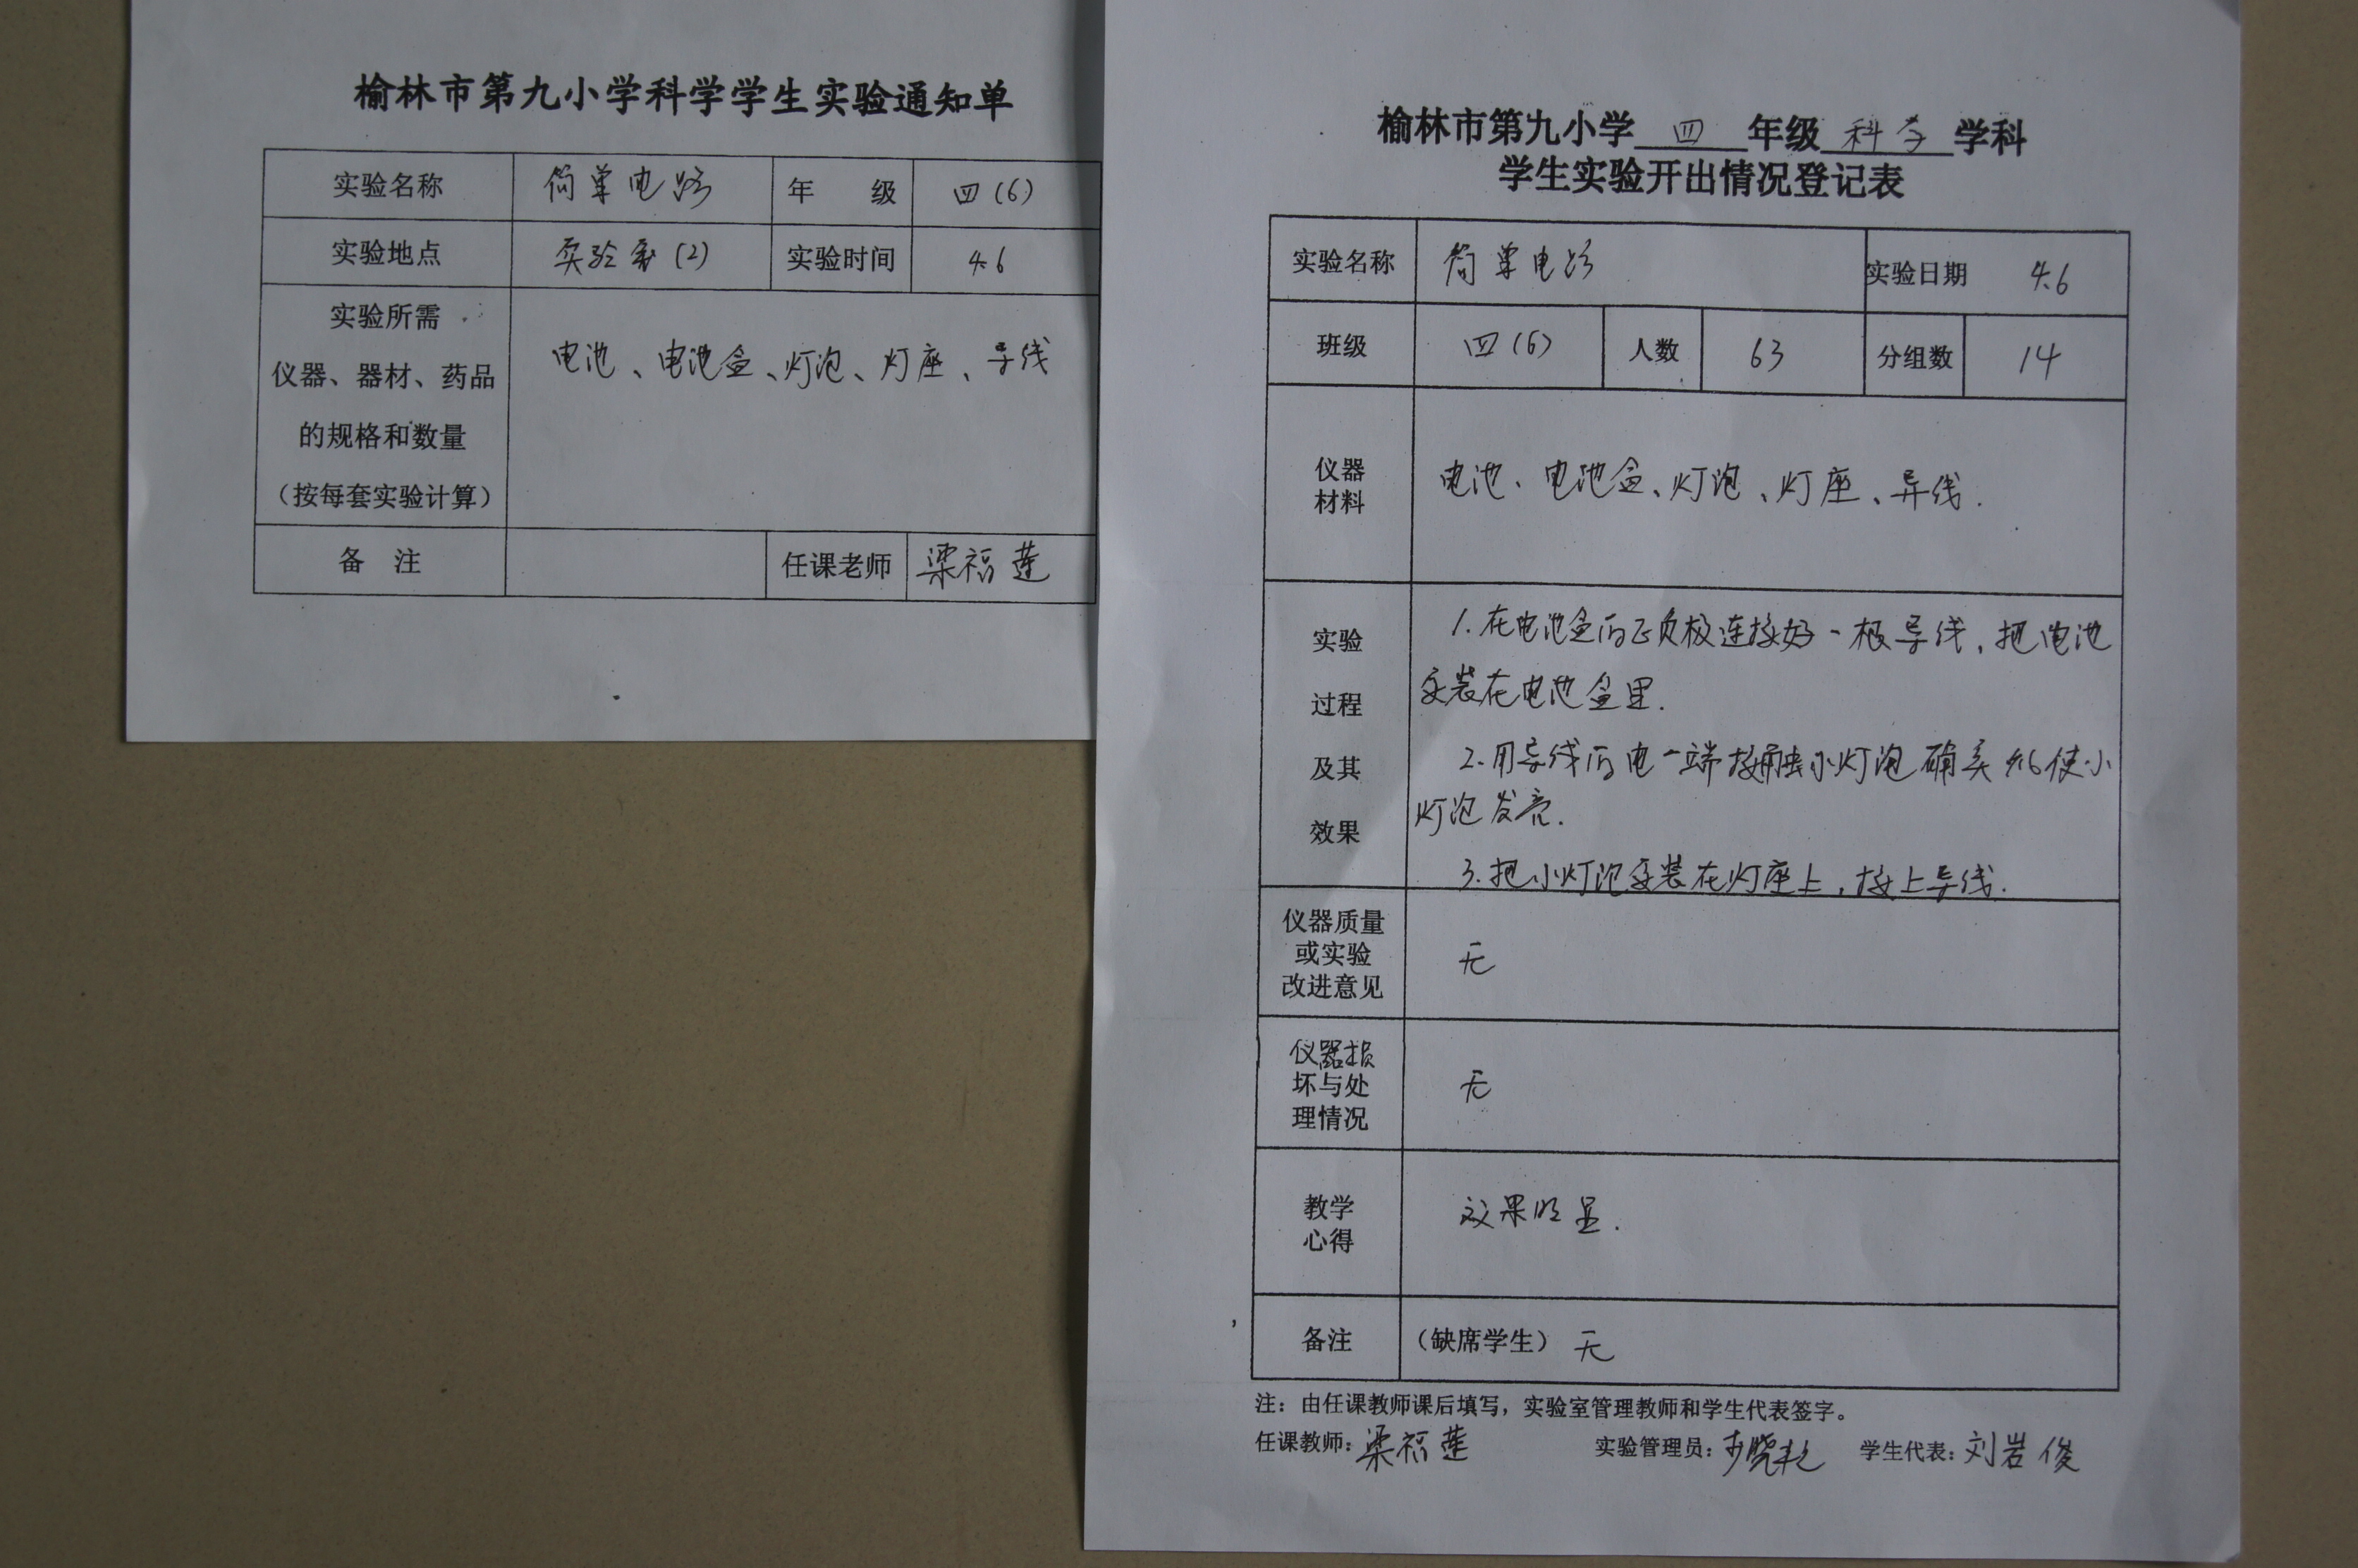 榆林市第九小学科学学生实验通知单
实验名称 简单电路 年 级 四(6)
实验地点 实验室(2) 实验时间 4.6
实验所需
仪器、器材、药品
的规格和数量
(按每套实验计算)
电池、电池盒、灯泡、灯座、导线
备 注 任课老师 梁福莲
榆林市第九小学 四 年级 科学 学科
学生实验开出情况登记表
实验名称 简单电路 实验日期 4.6
班级 四(6) 人数 63 分组数 14
仪器
材料
电池、电池盒、灯泡、灯座、导线.
实验
过程
及其
效果
1.在电池盒的正负极连接好一根导线,把电池
安装在电池盒里.
2.用导线的电一端接触小灯泡确实能使小
灯泡发亮.
3.把小灯泡安装在灯座上,接上导线.
仪器质量
或实验
改进意见
无
仪器损
坏与处
理情况
无
教学
心得
效果明显.
备注 (缺席学生) 无
注:由任课教师课后填写,实验室管理教师和学生代表签字。
任课教师:梁福莲 实验管理员: 学生代表:刘岩俊